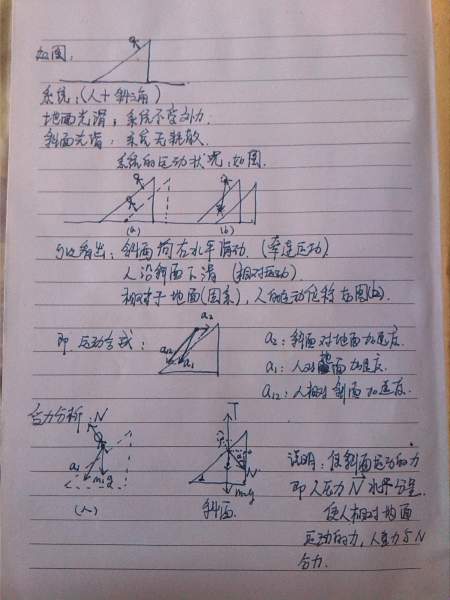 如图:
系统:(人+斜三角)
地面光滑,系统不受外力.
斜面光滑,系统无耗散.
系统的运动状况,如图.
(a) (b)
可以看出:斜面向右水平滑动.(牵连运动)
人沿斜面下滑 (相对运动)
相对于地面(因系),人的运动位移如图(b).
即.运动合成: a₂ a₁₂ a₁
a₂:斜面对地面加速度.
a₁:人对地面加速度.
a₁₂:人相对斜面加速度.
合力分析: N a₁ m₁g
(人)
T N m₂g
斜面.
说明:使斜面运动的力
即人压力N水平分量.
使人相对地面
运动的力,人重力与N
合力.